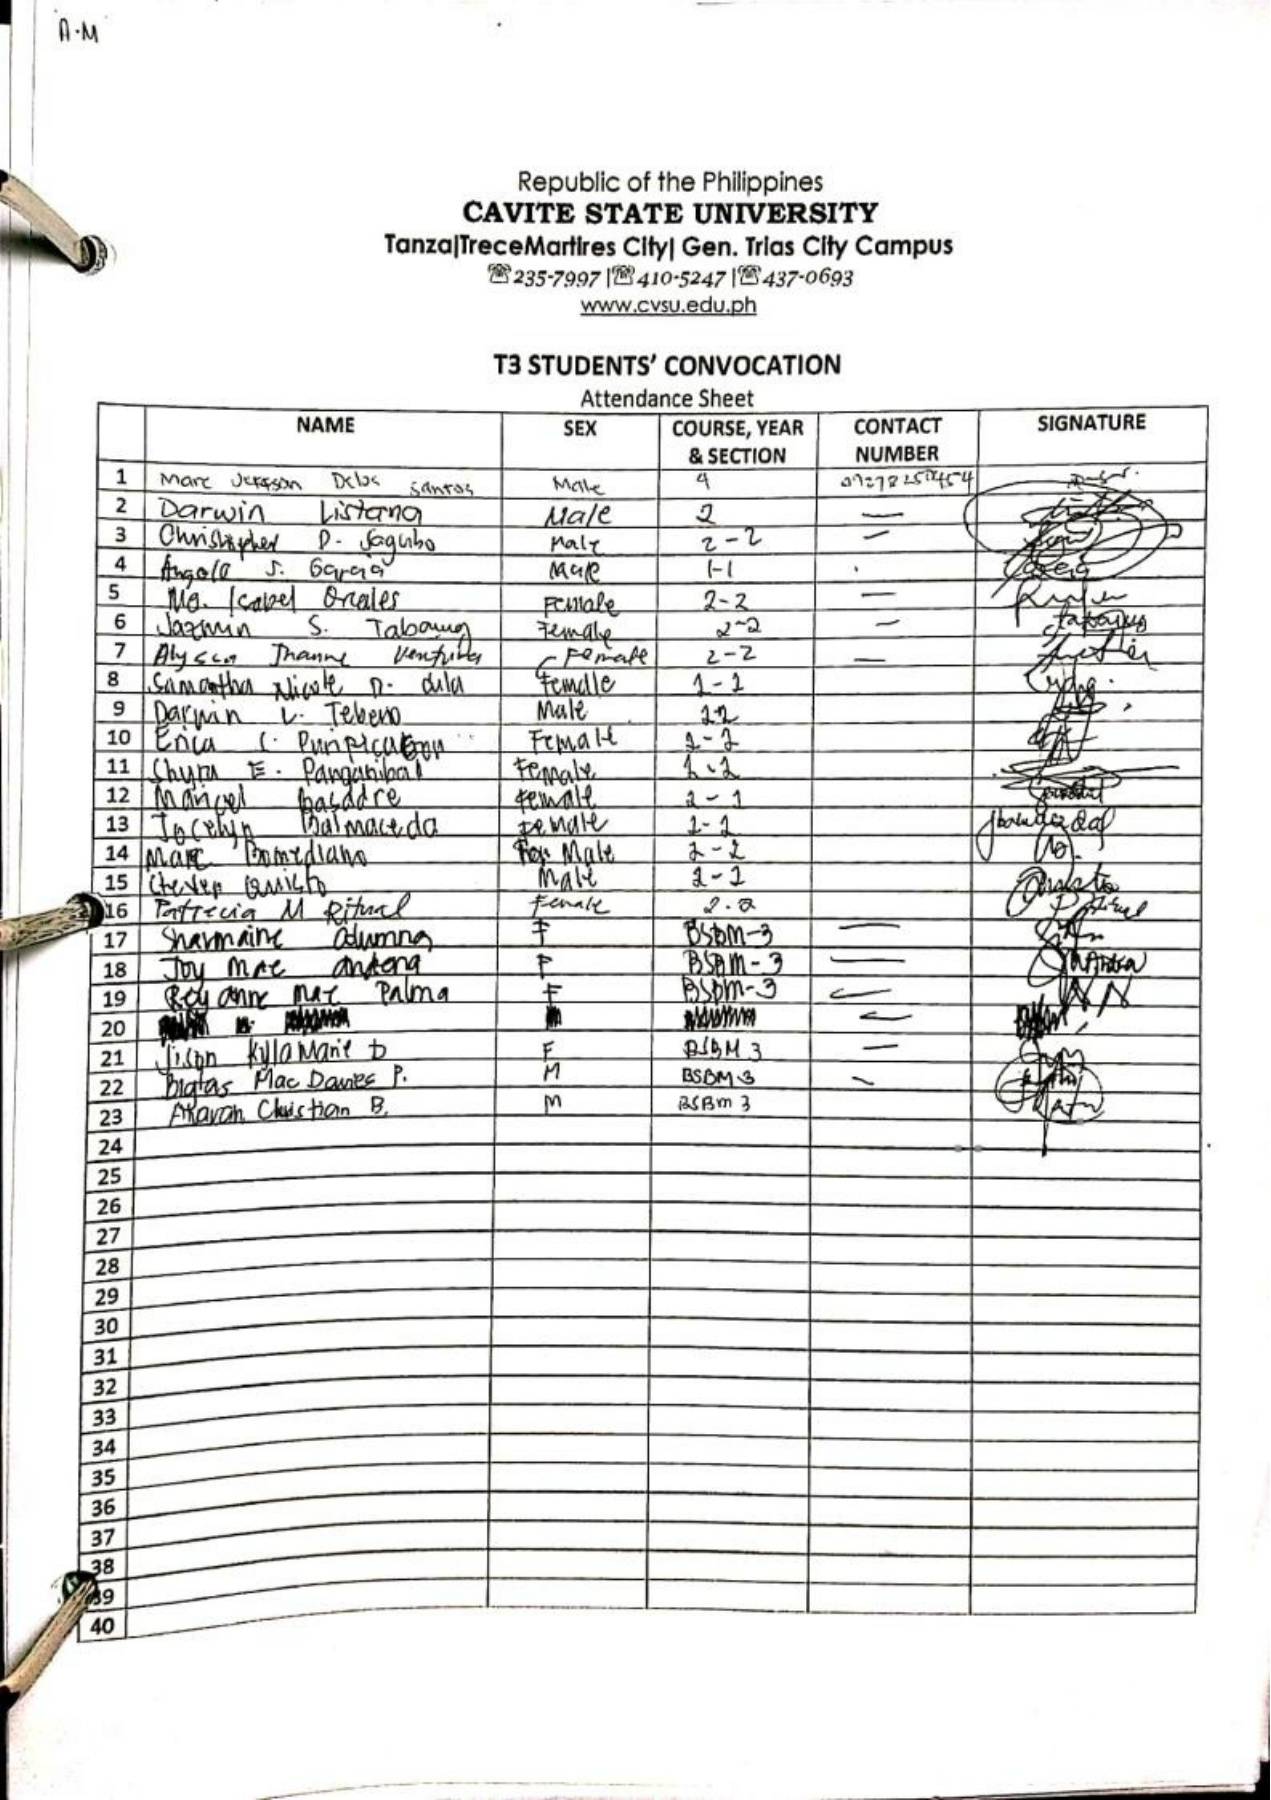 A-M
Republic of the Philippines
CAVITE STATE UNIVERSITY
Tanza|TreceMartires City| Gen. Trias City Campus
☏235-7997 |☏410-5247 |☏437-0693
www.cvsu.edu.ph
T3 STUDENTS' CONVOCATION
Attendance Sheet
NAME SEX COURSE, YEAR & SECTION CONTACT NUMBER SIGNATURE
1 Marc Delos Santos Male 4
2 Darwin Listana Male 2 —
3 Christopher D. Sagubo Male 2-2 —
4 Angelo S. Garcia Male 1-1
5 Ma. Isabel Oreales Female 2-2 —
6 Jazmin S. Female 2-2 —
7 Alyssa Jhanne Ventura Female 2-2 —
8 Samantha Nicole D. dula Female 2-2
9 Darwin V. Tebeno Male 22
10 Erica C. Purificacion Female 2-2
11 Shyra E. Panganibal Female 2-2
12 Maricel basadre Female 2-2
13 Jocelyn Balmaceda Female 2-2
14 Marc Bomediano Male 2-2
15 Steven Quisto Male 2-2
16 Patrecia M Ritual Female 2-2
17 Sharmaine adumna F BSBM-3 —
18 Joy Mae andena F BSBM-3 —
19 Rey anne mae Palma F BSBM-3 —
20 —
21 Jison Kyla Marie D F BSBM 3 —
22 Biglas Mac Davies P. M BSBM 3 —
23 Akavan Christian B. M BSBM 3
24
25
26
27
28
29
30
31
32
33
34
35
36
37
38
39
40